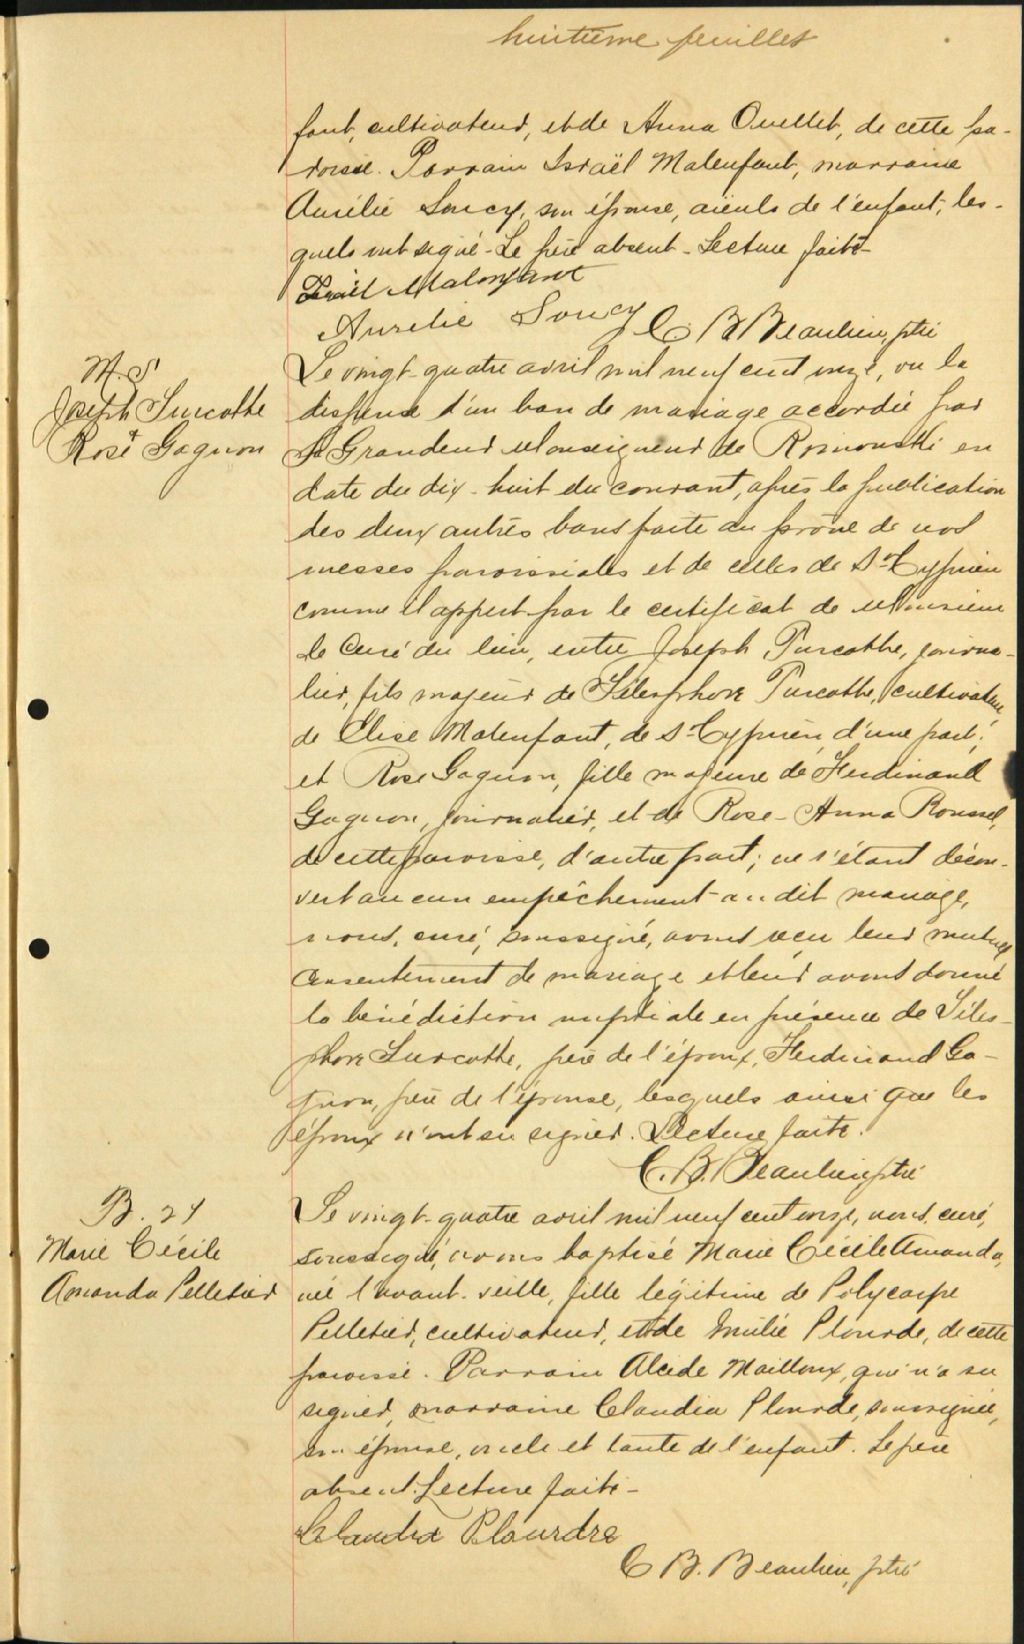 huitième feuillet
fant, cultivateur, et de Anna Ouellet, de cette pa-
roisse. Parrain Israël Malenfant, marraine
Aurélie Soucy, son épouse, aïeuls de l'enfant, les-
quels ont signé. Le père absent. Lecture faite
Israël Malenfant
Aurélie Soucy
C B Beaulieu, ptre
M. 5
Joseph Turcotte
& Rose Gagnon
Le vingt-quatre avril mil neuf cent onze, vu la
dispense d'un ban de mariage accordée par
Sa Grandeur Monseigneur de Rimouski en
date du dix-huit du courant, après la publication
des deux autres bans faite au prône de nos
messes paroissiales et de celles de St-Cyprien
comme il appert par le certificat de Monsieur
le Curé du lieu, entre Joseph Turcotte, journa-
lier, fils majeur de Télesphore Turcotte, cultivateur
de Elise Malenfant, de St-Cyprien, d'une part;
et Rose Gagnon, fille majeure de Ferdinand
Gagnon, journalier, et de Rose-Anna Roussel,
de cette paroisse, d'autre part; ne s'étant décou-
vert aucun empêchement au dit mariage,
nous, curé, soussigné, avons reçu leur mutuel
consentement de mariage et leur avons donné
la bénédiction nuptiale en présence de Téles-
phore Turcotte, père de l'époux, Ferdinand Ga-
gnon, père de l'épouse, lesquels ainsi que les
époux n'ont su signer. Lecture faite.
C. B. Beaulieu ptre
B. 24
Marie Cécile
Amanda Pelletier
Le vingt-quatre avril mil neuf cent onze, nous, curé,
soussigné, avons baptisé Marie Cécile Amanda,
née l'avant-veille, fille légitime de Polycarpe
Pelletier, cultivateur, et de Emilie Plourde, de cette
paroisse. Parrain Alcide Mailloux, qui n'a su
signer, marraine Claudia Plourde, soussignée,
son épouse, oncle et tante de l'enfant. Le père
absent. Lecture faite-
Claudia Plourdre
C B. Beaulieu, ptre